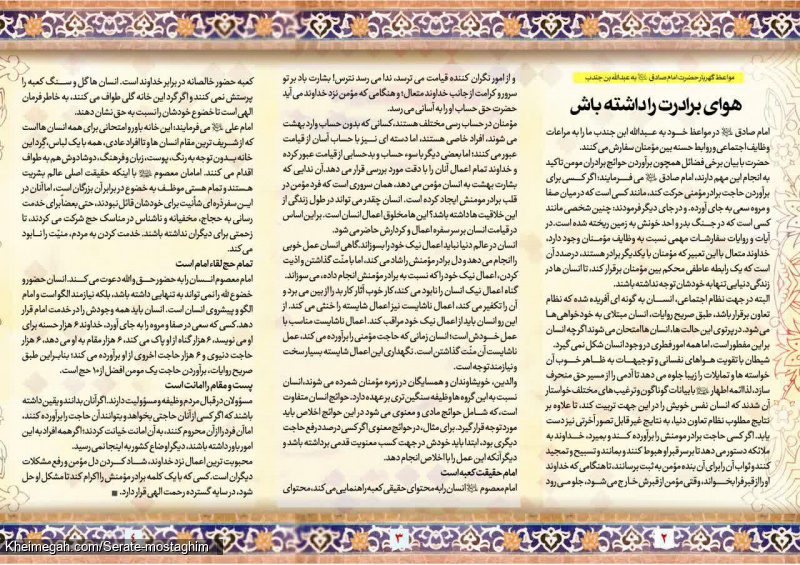 مواعظ گهربار حضرت امام صادق به عبدالله بن جندب
هوای برادرت را داشته باش
امام صادق در مواعظ خود به عبدالله ابن جندب ما را به مراعات
وظایف اجتماعی و روابط حسنه بین مؤمنان سفارش می کنند.
حضرت با بیان برخی فضائل همچون برآوردن حوائج برادران مومن تاکید
به انجام این مهم دارند، امام صادق می فرمایند: اگر کسی برای
برآوردن حاجت برادر مؤمنی حرکت کند، مانند کسی است که در میان صفا
و مروه سعی به جای آورده. و در جای دیگر فرمودند: چنین شخصی مانند
کسی است که در جنگ بدر و احد خونش به زمین ریخته شده است. در
آیات و روایات سفارشات مهمی نسبت به وظایف مؤمنان وجود دارد،
خداوند متعال با این تعبیر که مؤمنان با یکدیگر برادر هستند، درصدد آن
است که یک رابطه عاطفی محکم بین مؤمنان برقرار کند، تا انسان ها در
زندگی دنیایی تنها به خودشان توجه نداشته باشند.
البته در جهت نظام اجتماعی، انسان به گونه ای آفریده شده که نظام
تعاون برقرار باشد، طبق صریح روایات، انسان مبتلای به خودخواهی ها
می شود. در پرتوی این حالت ها، انسان ها امتحان می شوند اگرچه انسان
بر این مفطور است، اما همه امور فطری در وجود انسان شکل نمی گیرد.
شیطان با تقویت هواهای نفسانی و توجیهات به ظاهر خوب آن
خواسته ها و تمایلات را زیبا جلوه می دهد تا آدمی را از مسیر حق منحرف
سازد، لذا ائمه اطهار با بیانات گوناگون و ترغیب های مختلف خواستار
آن شدند که انسان نفس خویش را در این جهت تربیت کند، تا علاوه بر
نتایج مطلوب نظام تعاون دنیا، به نتایج غیر قابل تصور آخرتی نیز دست
یابد. اگر کسی حاجت برادر مومنش را برآورده کند و بمیرد، خداوند به
ملائکه دستور می دهد تا بر سر قبر او هبوط کنند و بمانند و تسبیح و تمجید
کنند و ثواب آن را برای آن بنده مؤمن به ثبت برسانند، تا هنگامی که خداوند
او را از قبر فرا بخواند، وقتی مؤمن از قبرش خارج می شود، جلو می رود
و از امور نگران کننده قیامت می ترسد، ندا می رسد نترس! بشارت باد بر تو
سرور و کرامت از جانب خداوند متعال؛ و هنگامی که مؤمن نزد خداوند می آید
حضرت حق حساب او را به آسانی می رسد.
مؤمنان در حساب رسی مختلف هستند، کسانی که بدون حساب وارد بهشت
می شوند، افراد خاصی هستند، اما دسته ای نیز با حساب آسان از قیامت
عبور می کنند؛ اما بعضی دیگر با سوء حساب و بدحسابی از قیامت عبور کرده
و خداوند تمام اعمال آنان را با دقت مورد بررسی قرار می دهد. آن ندایی که
بشارت بهشت به انسان مؤمن می دهد، همان سروری است که فرد مومن در
قلب برادر مومنش ایجاد کرده است. انسان چقدر می تواند در طول زندگی از
این خلاقیت ها داشته باشد؟ این ها مخلوق اعمال انسان است. بر این اساس
در قیامت انسان بر سر سفره اعمال و کردارش حاضر می شود.
انسان در عالم دنیا نباید اعمال نیک خود را بسوزاند. گاهی انسان عمل خوبی
را انجام می دهد و دل برادر مؤمنش را شاد می کند، اما با منّت گذاشتن و اذیت
کردن، اعمال نیک خود را که نسبت به برادر مؤمنش انجام داده، می سوزاند.
گناه اعمال نیک انسان را نابود می کند، کار خوب آثار کار بد را از بین می برد و
آن را تکفیر می کند، اعمال ناشایست نیز اعمال شایسته را خنثی می کند. از
این رو انسان باید از اعمال نیک خود مراقب کند. اعمال ناشایست مناسب با
عمل خودش است؛ انسان زمانی که حاجت مؤمنی را برآورده می کند، عمل
ناشایست آن منّت گذاشتن است. نگهداری این اعمال شایسته بسیار سخت
و نیازمند توجه است.
والدین، خویشاوندان و همسایگان در زمره مؤمنان شمرده می شوند، انسان
نسبت به این گروه ها وظیفه سنگین تری بر عهده دارد. حوائج انسان متفاوت
است، که شامل حوائج مادی و معنوی می شود در این حوائج اخلاص باید
مورد توجه قرار گیرد. برای مثال، در حوائج معنوی اگر کسی درصدد رفع حاجت
دیگری بود، ابتدا باید خودش در جهت کسب معنویت قدمی برداشته باشد و
دیگر آنکه این عمل را با اخلاص انجام دهد.
امام حقیقت کعبه است
امام معصوم انسان را به محتوای حقیقی کعبه راهنمایی می کند، محتوای
کعبه حضور خالصانه در برابر خداوند است. انسان ها گل و سنگ کعبه را
پرستش نمی کنند و اگر گرد این خانه گلی طواف می کنند، به خاطر فرمان
الهی است تا خضوع خودشان را نسبت به حق نشان دهند.
امام علی می فرمایند؛ این خانه باور و امتحانی برای همه انسان ها است
که از شریف ترین مقام انسان ها و تا افراد عادی، همه با یک لباس، گرد این
خانه بدون توجه به رنگ، پوست، زبان و فرهنگ، دوشادوش هم به طواف
اقدام می کنند. امامان معصوم با اینکه حقیقت اصلی عالم بشریت
هستند و تمام هستی موظف به خضوع در برابر آن بزرگان است، اما آنان در
این سفر ذره ای شأنیت برای خودشان قائل نبودند، حتی بعضاً برای خدمت
رسانی به حجاج، مخفیانه و ناشناس در مناسک حج شرکت می کردند، تا
زحمتی برای دیگران نداشته باشند. خدمت کردن به مردم، منیّت را نابود
می کند.
تمام حج لقاء امام است
امام معصوم انسان را به حضور حق و الله دعوت می کند. انسان حضور و
خضوع لله را نمی تواند به تنهایی داشته باشد، بلکه نیازمند الگو است و امام
الگو و پیشروی انسان است. انسان باید همه وجودش را در خدمت امام قرار
دهد. کسی که سعی در صفا و مروه را به جای آورد، خداوند ۶ هزار حسنه برای
او می نویسد، ۶ هزار گناه از او پاک می کند، ۶ هزار مقام به او می دهد، ۶ هزار
حاجت دنیوی و ۶ هزار حاجت اخروی از او برآورده می کند؛ بنابراین طبق
صریح روایات، برآوردن حاجت یک مومن افضل از ۱۰ حج است.
پست و مقام را امانت است
مسؤولان در قبال مردم وظیفه و مسؤولیت دارند. اگر آنان بدانند و یقین داشته
باشند که اگر کسی از آنان حاجتی بخواهد و بتوانند آن حاجت را برآورده کنند،
اما آن فرد را از آن محروم کنند، به آن امانت خیانت کردند؛ اگر همه افراد به این
امور باور داشته باشند، دیگر اوضاع کشور به اینجا نمی رسید.
محبوبیت ترین اعمال نزد خداوند، شاد کردن دل مؤمن و رفع مشکلات
دیگران است. کسی که با یک کلمه برادر مومنش را اکرام کند تا مشکل او حل
شود، در سایه گسترده رحمت الهی قرار دارد.
۲
۳
Kheimegah.com/Serate-mostaghim